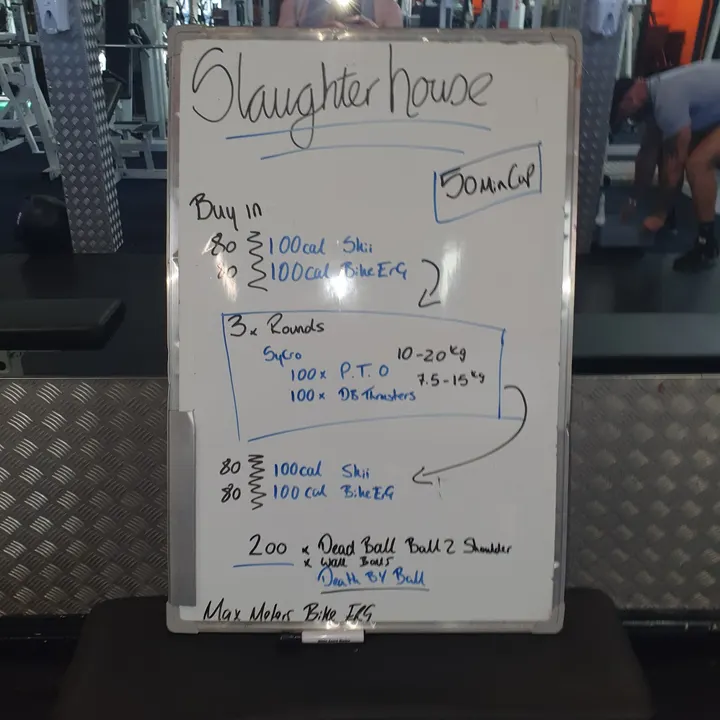 Slaughter house
50 Min Cap
Buy in
80 100cal Skii
80 100cal Bike ErG
3x Rounds
Sycro 10-20kg
100x P.T.O 7.5-15kg
100x DB Thrusters
80 100cal Skii
80 100 cal Bike EG
200 x Dead Ball Ball 2 Shoulder
x Wall Balls
Death BY Ball
Max Meters Bike ERG